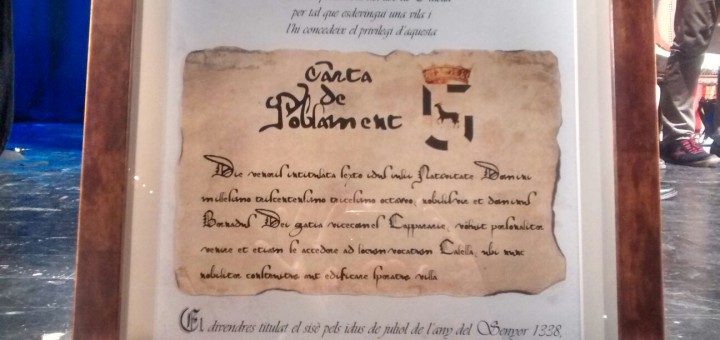 per tal que esdevingui una vila i
l'hi concedeix el privilegi d'aquesta
Carta
de
Poblament
Die veneris intitulata sexto idus iulii Nativitate Domini
millesimo trescentessimo tricesimo octavo, nobilis vir et dominus
Bernadus Dei gatia vicecomes Cappararie, voluit personaliter
venire et etiam se accedere ad locum vocatum Calella, ubi nunc
nobiliter construitus est edificare
villa
El divendres titulat el sisè pels idus de juliol de l'any del Senyor 1338,